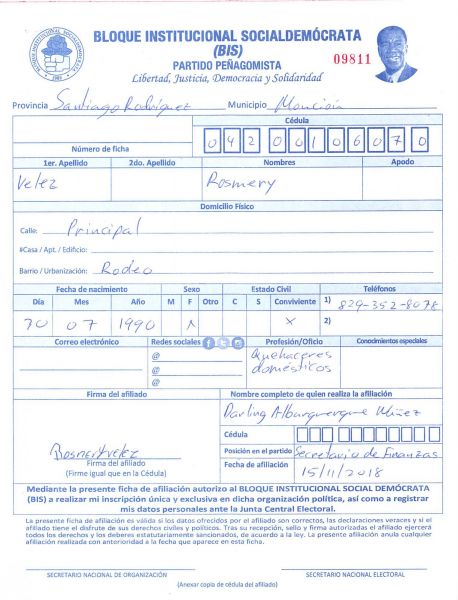 BLOQUE INSTITUCIONAL SOCIALDEMÓCRATA
(BIS)
PARTIDO PEÑAGOMISTA
Libertad, Justicia, Democracia y Solidaridad
09811
Provincia Santiago Rodríguez Municipio Monción
Cédula
Número de ficha 042 0010607 0
1er. Apellido 2do. Apellido Nombres Apodo
Velez Rosmery
Domicilio Físico
Calle: Principal
#Casa / Apt. / Edificio:
Barrio / Urbanización: Rodeo
Fecha de nacimiento Sexo Estado Civil Teléfonos
Día Mes Año M F Otro C S Conviviente 1) 829-352-8078
07 1990 x 2)
Correo electrónico Redes sociales Profesión/Oficio Conocimientos especiales
@ Quehaceres
@ domésticos
@
Firma del afiliado Nombre completo de quien realiza la afiliación
Darling Alburquerque Núñez
Cédula
Rosmery velez Posición en el partido Secretario de Finanzas
Firma del afiliado
(Firme igual que en la Cédula) Fecha de afiliación 15/11/2018
Mediante la presente ficha de afiliación autorizo al BLOQUE INSTITUCIONAL SOCIAL DEMÓCRATA
(BIS) a realizar mi inscripción única y exclusiva en dicha organización política, así como a registrar
mis datos personales ante la Junta Central Electoral.
La presente ficha de afiliación es válida si los datos ofrecidos por el afiliado son correctos, las declaraciones veraces y si el
afiliado tiene el disfrute de sus derechos civiles y políticos. Tras su recepción, sello y firma autorizadas el afiliado ejercerá
todos los derechos y los deberes estatutariamente sancionados, de acuerdo a la ley. La presente afiliación anula cualquier
afiliación realizada con anterioridad a la fecha que aparece en esta ficha.
SECRETARIO NACIONAL DE ORGANIZACIÓN SECRETARIO NACIONAL ELECTORAL
(Anexar copia de cédula del afiliado)